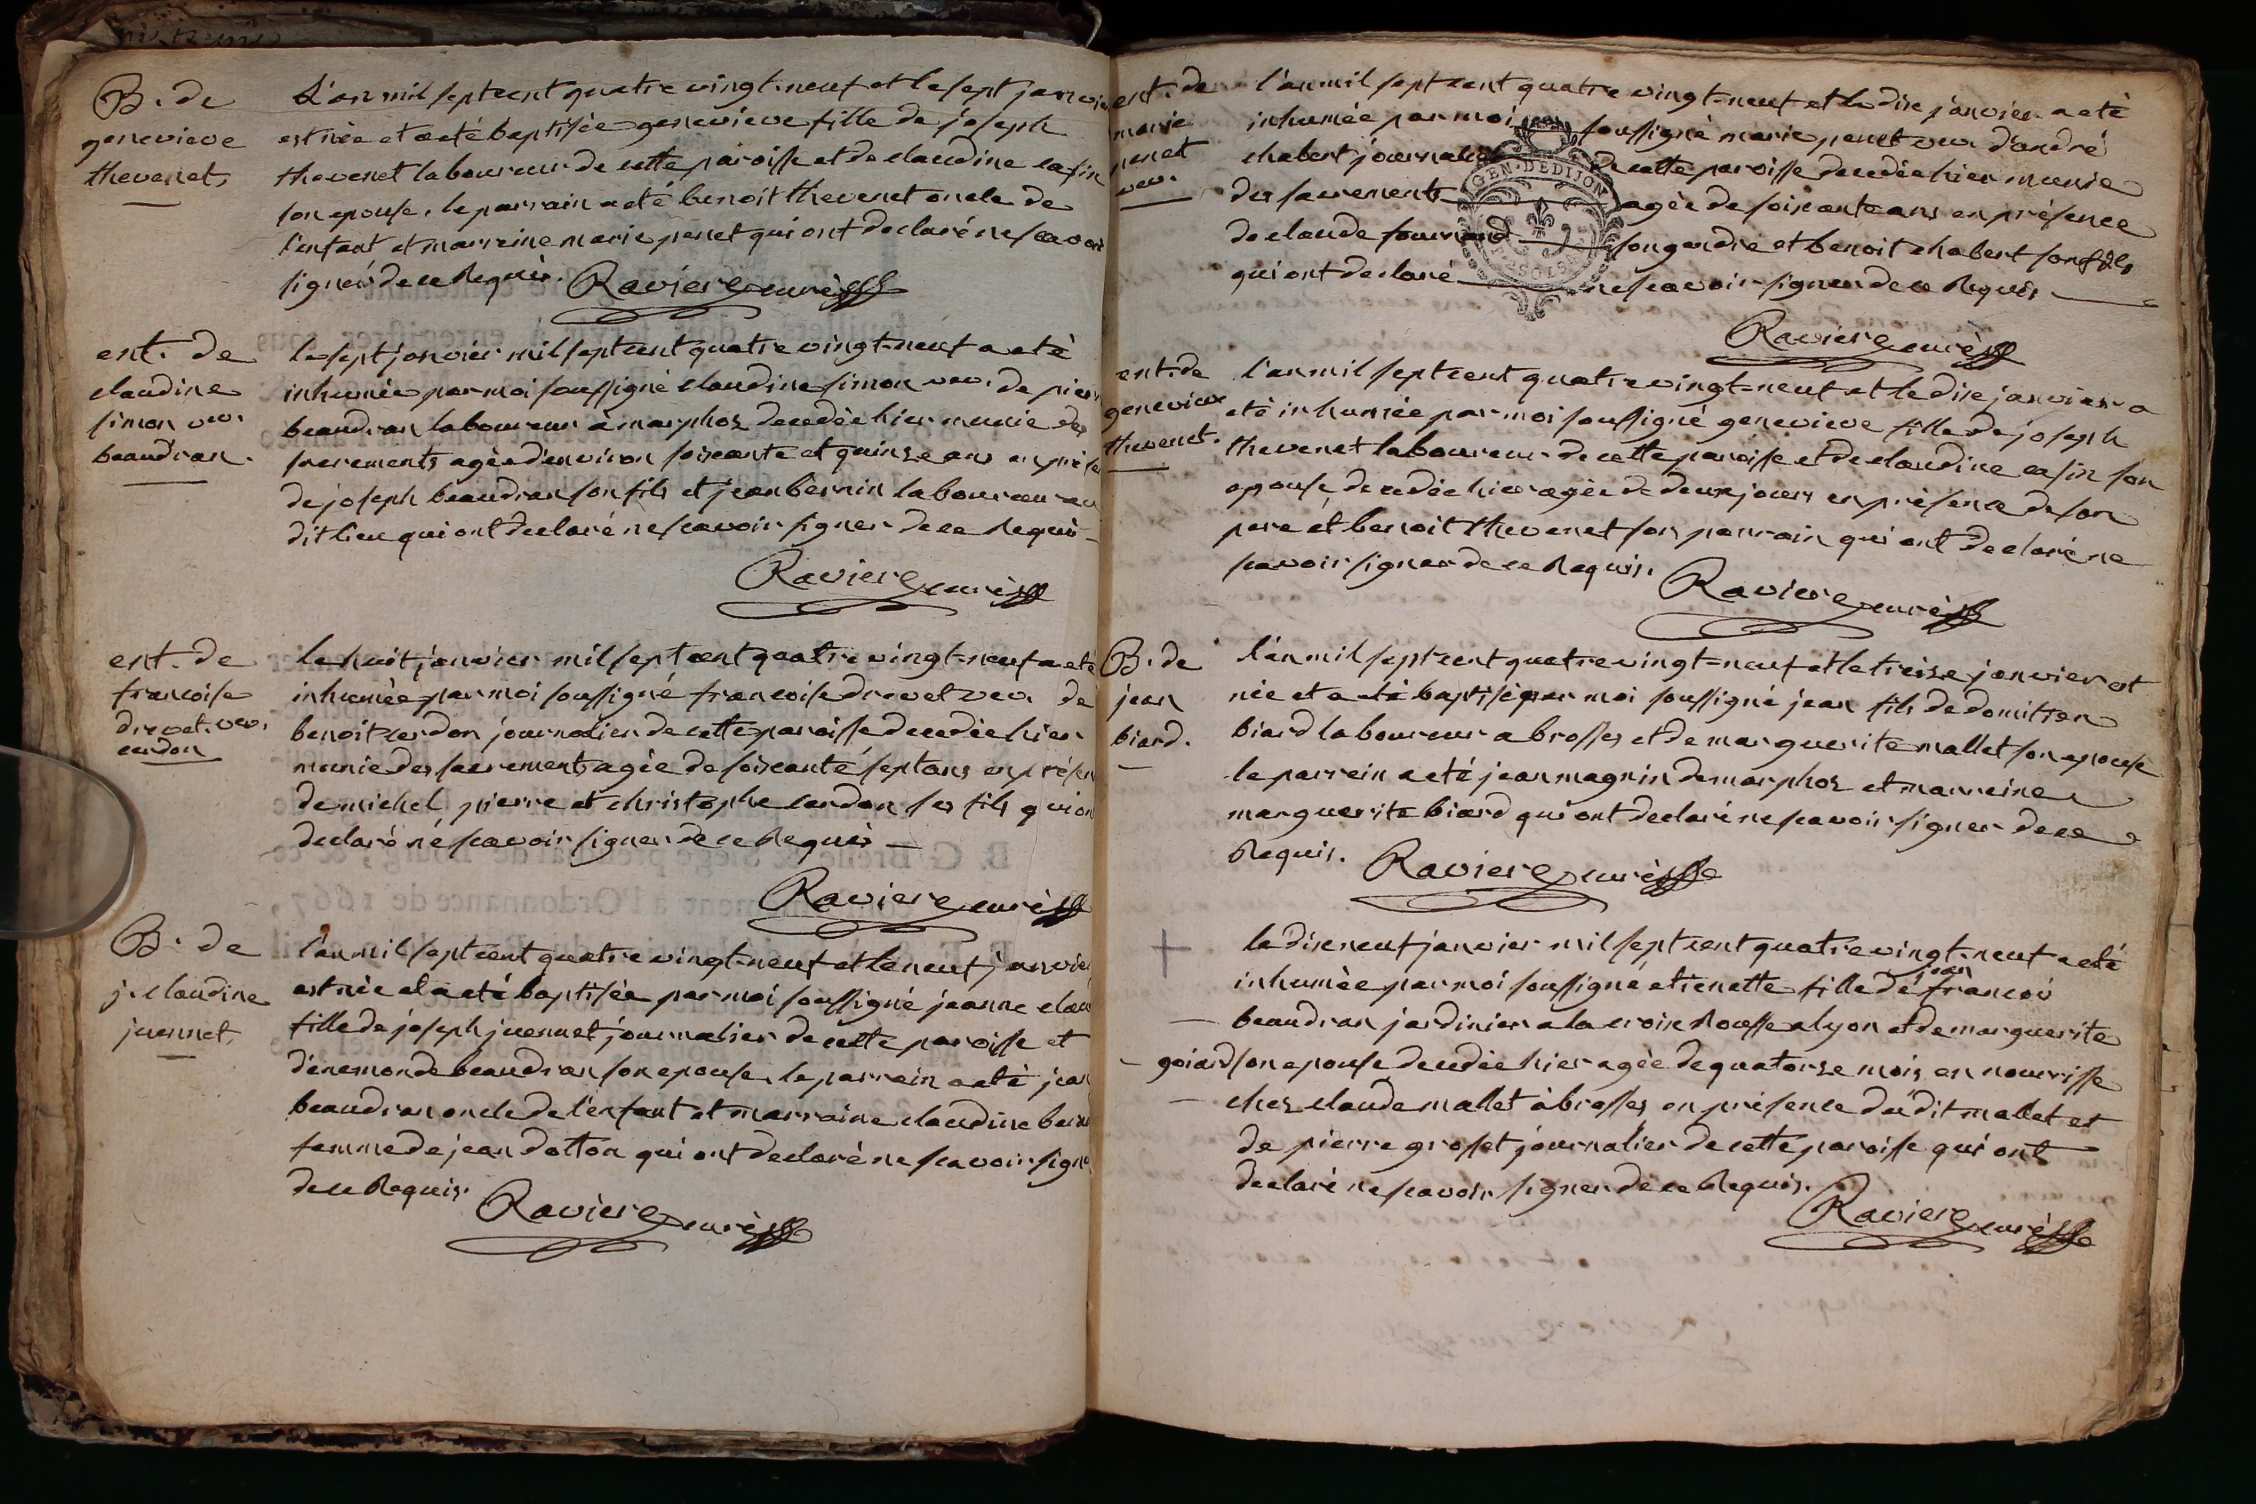 B. de
genevieve
thevenet,
L'an mil sept cent quatre vingt-neuf et le sept janvie
est née et a eté baptisée genevieve fille de joseph
thevenet laboureur de cette paroisse et de claudine cafin
son epouse. le parrain a eté benoit thevenet oncle de
l'enfant et marreine marie penet qui ont declaré ne scavoir
signer de ce Requis. Raviere curé
ent. de
claudine
simon veu.
beaudran.
le sept janvier mil sept cent quatre vingt-neuf a eté
inhumée par moi soussigné claudine simon veu. de pierr
beaudran laboureur a marphoz decedée hier munie des
sacrements agée d'environ soixante et quinze ans en prése
de joseph beaudran son fils et jean bernin laboureur au
dit lieu qui ont declaré ne scavoir signer de ce Requis
Raviere curé
ent. de
francoise
drevet. veu.
cardon
le huit janvier mil sept cent quatre vingt-neuf a eté
inhumée par moi soussigné francoise drevet veu. de
benoit cardon journalier de cette paroisse decedée hier
munie des sacrements agée de soixante sept ans en présen
de michel, pierre et christophe cardon ses fils qui on
declaré ne scavoir signer de ce Requis
Raviere curé
B. de
j. claudine
juennet,
l'an mil sept cent quatre vingt-neuf et le neuf janvie
est née et a eté baptisée par moi soussigné jeanne clau
fille de joseph juennet journalier de cette paroisse et
d'enemonde beaudran son epouse. le parrain a eté jean
beaudran oncle de l'enfant et marraine claudine
femme de jean dotton qui ont declaré ne scavoir signe
de ce Requis. Raviere curé
ent. de
marie
penet
veu.
l'an mil sept cent quatre vingt-neuf et le dix janvier a eté
inhumée par moi soussigné marie penet veu. d'andré
chabert journalier de cette paroisse decedée hier munie
GEN. DE DIJON
des sacrements agée de soixante ans en présence
de claude son gendre et benoit chabert son fils
qui ont declaré ne scavoir signer de ce Requis
Raviere curé
ent. de
genevieve
thevenet.
l'an mil sept cent quatre vingt-neuf et le dix janvier a
eté inhumée par moi soussigné genevieve fille de joseph
thevenet laboureur de cette paroisse et de claudine cafin son
epouse decedée hier agée de deux jours en présence de son
pere et benoit thevenet son parrain qui ont declaré ne
scavoir signer de ce Requis.
Raviere curé
B. de
jean
biard.
l'an mil sept cent quatre vingt-neuf et le treize janvier est
née et a eté baptisé par moi soussigné jean fils de domitien
biard laboureur a brosses et de marguerite mallet son epouse
le parrein a eté jean magnin de marphoz et marreine
marguerite biard qui ont declaré ne scavoir signer de ce
Requis. Raviere curé
+
le dix neuf janvier mil sept cent quatre vingt-neuf a eté
jean
inhumée par moi soussigné etienette fille de francois
— beaudran jardinier a la croix Rousse a lyon et de marguerite
— goiard son epouse decedée hier agée de quatorze mois en nourisse
— chez claude mallet à brosses en présence du dit mallet et
de pierre grosset journalier de cette paroisse qui ont
declaré ne scavoir signer de ce Requis.
Raviere curé